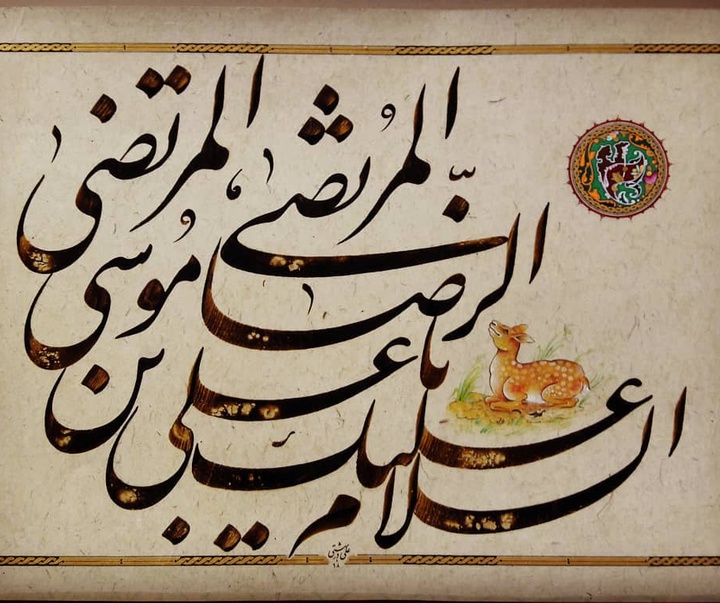 السلام علیک
یا علی بن مُوسی
الرّضا المُرتضی
المرتضی